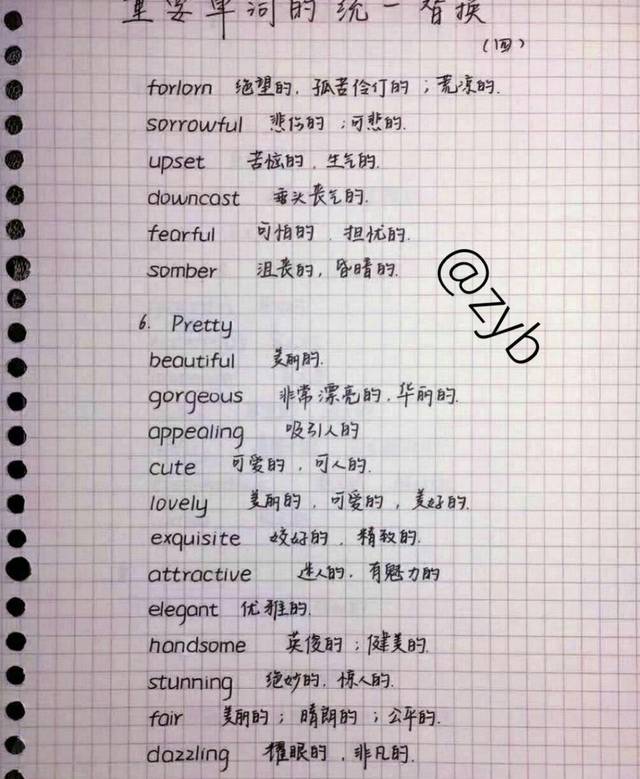 重要单词的统一替换
(四)
forlorn 绝望的, 孤苦伶仃的；荒凉的.
sorrowful 悲伤的；可悲的.
upset 苦恼的, 生气的.
downcast 垂头丧气的.
fearful 可怕的, 担忧的.
somber 沮丧的, 昏暗的.
@zyb
6. Pretty
beautiful 美丽的.
gorgeous 非常漂亮的, 华丽的.
appealing 吸引人的
cute 可爱的, 可人的.
lovely 美丽的, 可爱的, 美好的.
exquisite 姣好的, 精致的.
attractive 迷人的, 有魅力的
elegant 优雅的.
handsome 英俊的；健美的.
stunning 绝妙的, 惊人的.
fair 美丽的；晴朗的；公平的.
dazzling 耀眼的, 非凡的.